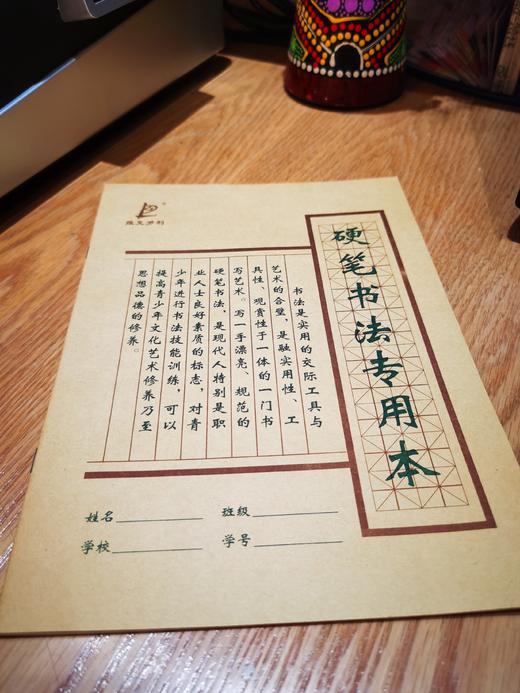 硬笔书法专用本
书法是实用的交际工具与
艺术的合璧，是融实用性、工
具性、观赏性于一体的一门书
写艺术。写一手漂亮、规范的
硬笔书法，是现代人特别是职
业人士良好素质的标志，对青
少年进行书法技能训练，可以
提高青少年文化艺术修养乃至
思想品德的修养。
姓名__________ 班级__________
学校__________ 学号__________